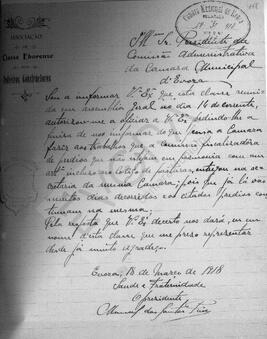 ASSOCIAÇÃO
DA
Classe Eborense
DOS
Industriaes Constructores
Camara Municipal de Evora
Il.mo Sr. Presidente da
Comissão Administrativa
da Camara Municipal
d'Evora
Venho informar V.ª Ex.ª que esta classe reunida
em geral no dia 16 do corrente,
autorizou-me a oficiar a V.ª Ex.ª pedindo lhe a
fineza de nos informar do que pensa a Camara
fazer aos trabalhos que a comissão fiscalizadora
de predios que não estejam em harmonia com um
art.º incluso no codigo de posturas, entregou na se-
cretaria da mesma Camara; pois que já lá vão
muitos dias decorridos e os citados predios con-
tinuam na mesma.
Pela resposta que V.ª Ex.ª decerto nos dará, eu em
nome d'esta classe que me preso representar
desde já muito agradeço.
Evora, 18 de Março de 1918
Saude e Fraternidade
O presidente
Manuel dos Santos